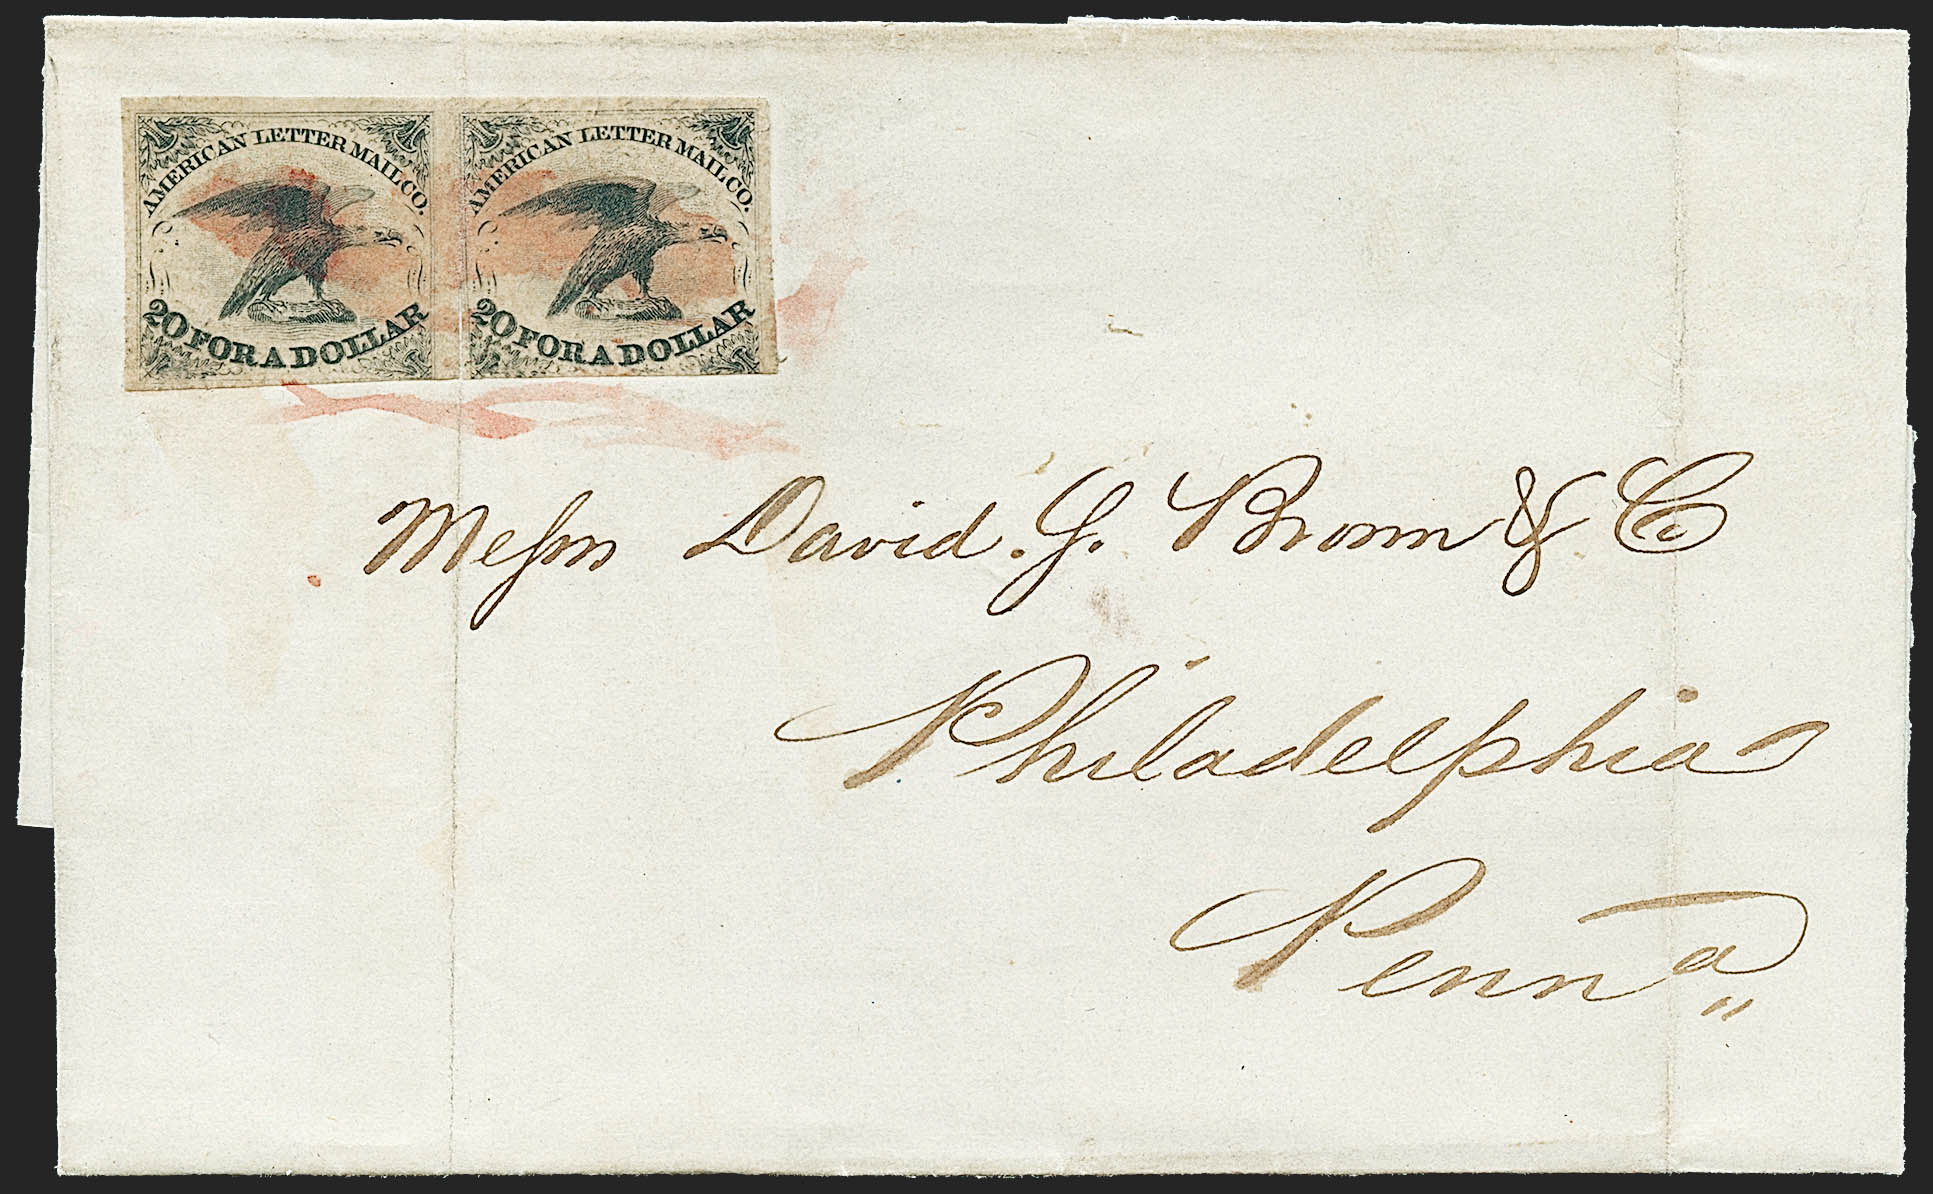 AMERICAN LETTER MAIL CO.
20 FOR A DOLLAR
AMERICAN LETTER MAIL CO.
20 FOR A DOLLAR
Messrs David. G. Brown & Co
Philadelphia
Penna